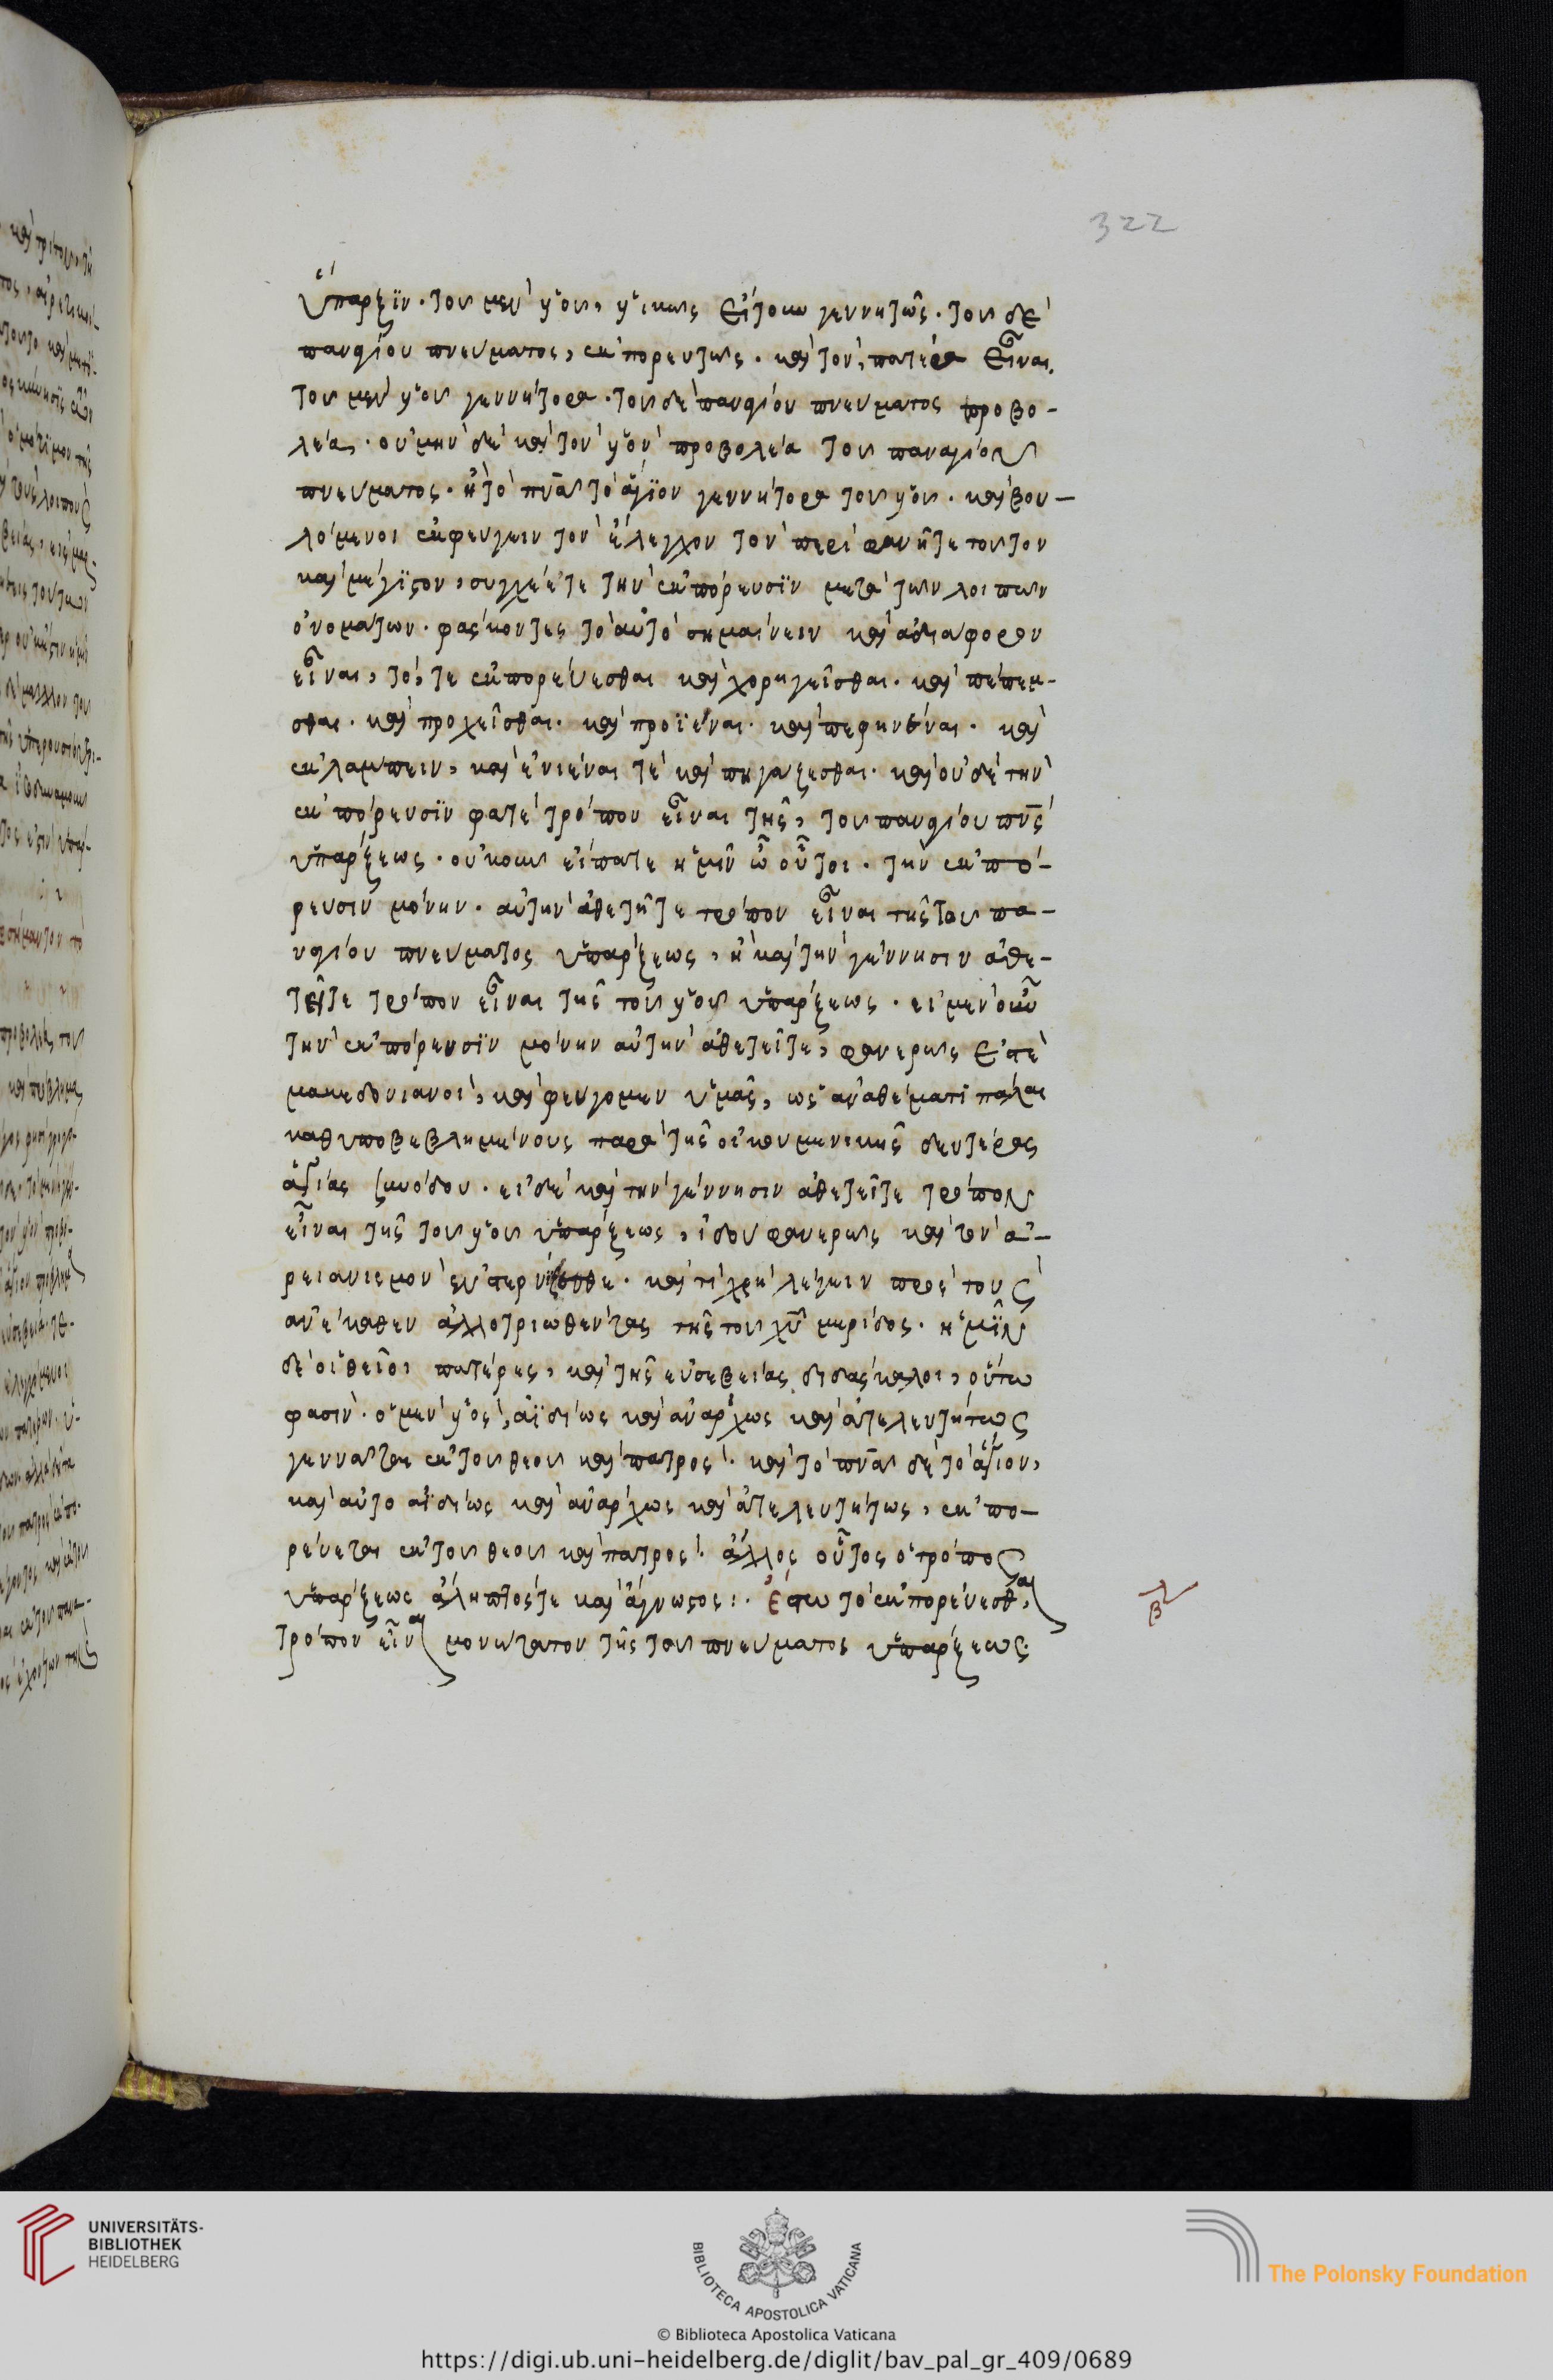 322
ὕπαρξϊν. τοῦ μὲν υἱοῦ, υἱικῶς εἴτουν γεννητῶς. τοῦ δὲ
παναγίου πνεύματος, ἐκπορευτῶς. καὶ τὸν, πατέρα εἶναι,
τοῦ μὲν υἱοῦ γεννήτορα. τοῦ δὲ παναγίου πνεύματος προβο-
λέα. οὐ μὴν δὲ καὶ τὸν υἱὸν προβολέα τοῦ παναγίου
πνεύματος. ἢ τὸ πνᾶ τὸ ἅγϊον γεννήτορα τοῦ υἱοῦ. καὶ βου-
λόμενοι ἐκφεύγειν τὸν ἔλεγχον τὸν περιφανῆ τε τοῦτον
καὶ μέγϊστον, συγχέετε τὴν ἐκπόρευσϊν μετὰ τῶν λοιπῶν
ὀνομάτων. φάσκοντες τὸ αὐτὸ σημαίνειν καὶ ἀδιάφορον
εἶναι, τό, τε ἐκπορεύεσθαι καὶ χορηγεῖσθαι. καὶ πέπεμ-
σθαι. καὶ προχεῖσθαι. καὶ προϊέναι. καὶ πεφηνέναι. καὶ
ἐκλάμπειν, καὶ ἐνιέναι τὲ καὶ πηγάζεσθαι. καὶ οὐδὲ τὴν
ἐκπόρευσϊν φατὲ τρόπον εἶναι τῆς, τοῦ παναγίου πνς
ὑπάρξεως. οὐκοῦν εἴπατε ἡμῖν ὦ οὗτοι. τὴν ἐκπό-
ρευσιν μόνην. αὐτὴν ἀθετῆτε τρόπον εἶναι τῆς τοῦ πα-
ναγίου πνεύματος ὑπάρξεως, ἢ καὶ τὴν γέννησιν ἀθε-
τῆτε τρόπον εἶναι τῆς τοῦ υἱοῦ ὑπάρξεως. εἰ μὲν οὖν
τὴν ἐκπόρευσϊν μόνην αὐτὴν ἀθετεῖτε, φανερῶς ἐστὲ
μακεδονιανοὶ, καὶ φεύγομεν ὑμᾶς, ὡς ἀναθέματι πάλαι
καθυποβεβλημένους παρὰ τῆς οἰκουμενικῆς δευτέρας
ἁγίας συνόδου. εἰ δὲ καὶ τὴν γέννησιν ἀθετεῖτε τρόπον
εἶναι τῆς τοῦ υἱοῦ ὑπάρξεως, ἰδοὺ φανερῶς καὶ τὸν ἀ-
ρειανισμὸν ἐνστερνίζεσθε. καὶ τί χρὴ λέγειν πρὸς τοὺς
ἀνέκαθεν ἀλλοτριωθέντας τῆς τοῦ χῦ μερίδος. ἡμῖν
δὲ οἱ θεῖοι πατέρες, καὶ τῆς εὐσεβείας διδάσκαλοι, οὕτω
φασὶν. ὁ μὲν υἱὸς, ἀϊδίως καὶ ἀνάρχως καὶ ἀτελευτήτως
γεννᾶται ἐκ τοῦ θεοῦ καὶ πατρὸς. καὶ τὸ πνᾶ δὲ τὸ ἅγιον,
καὶ αὐτὸ ἀϊδίως καὶ ἀνάρχως καὶ ἀτελευτήτως, ἐκπο-
ρεύεται ἐκ τοῦ θεοῦ καὶ πατρὸς. ἄλλος οὗτος ὁ τρόπος
ὑπάρξεως ἄληπτός τε καὶ ἄγνωστος:. Ἔστω τὸ ἐκπορεύεσθαι
τρόπον εἶναι μονώτατον τῆς τοῦ πνεύματος ὑπάρξεως.
UNIVERSITÄTS-
BIBLIOTHEK
HEIDELBERG
BIBLIOTECA APOSTOLICA VATICANA
The Polonsky Foundation
© Biblioteca Apostolica Vaticana
https://digi.ub.uni-heidelberg.de/diglit/bav_pal_gr_409/0689